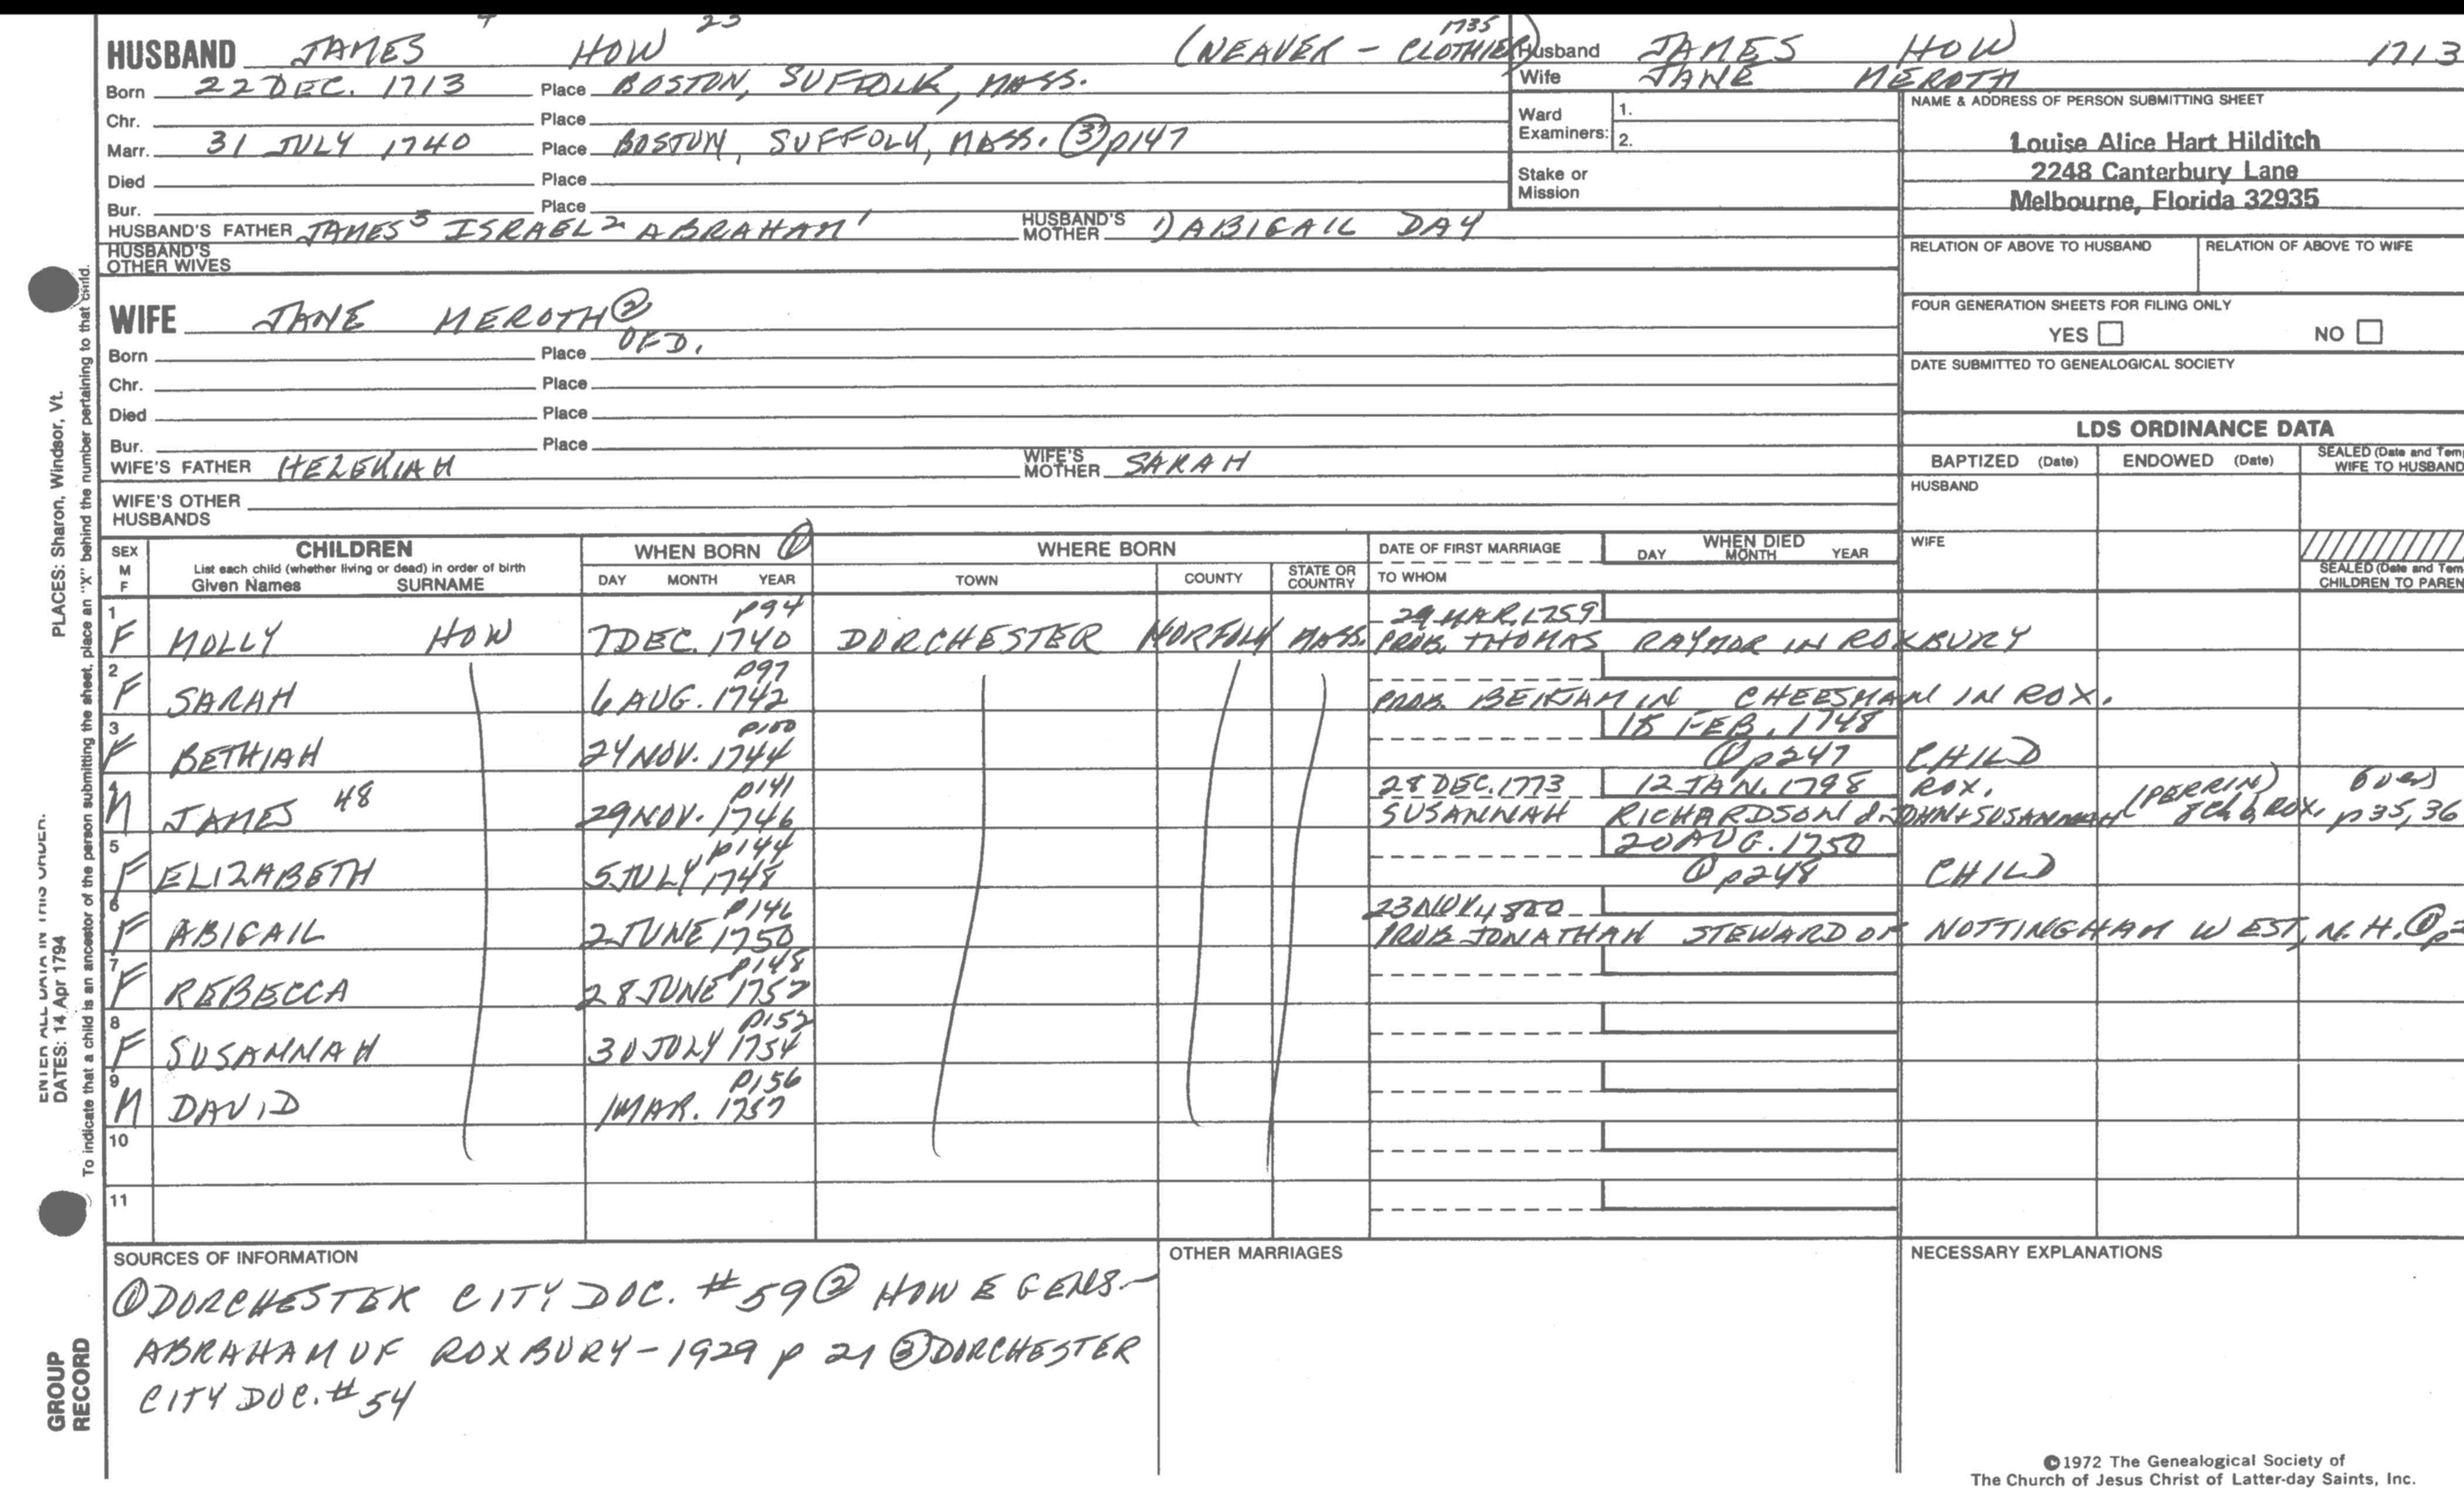 HUSBAND JAMES 4 HOW 23 (WEAVER - CLOTHIER) 1735
Born 22 DEC. 1713 Place BOSTON, SUFFOLK, MASS.
Chr. Place
Marr. 31 JULY 1740 Place BOSTON, SUFFOLK, MASS. ③ p147
Died Place
Bur. Place
HUSBAND'S FATHER JAMES3 ISRAEL2 ABRAHAM1 HUSBAND'S MOTHER 1) ABIGAIL DAY
HUSBAND'S OTHER WIVES
Husband JAMES HOW 1713
Wife JANE MEROTH
Ward Examiners: 1.
2.
Stake or Mission
NAME & ADDRESS OF PERSON SUBMITTING SHEET
Louise Alice Hart Hilditch
2248 Canterbury Lane
Melbourne, Florida 32935
RELATION OF ABOVE TO HUSBAND RELATION OF ABOVE TO WIFE
FOUR GENERATION SHEETS FOR FILING ONLY
YES NO
DATE SUBMITTED TO GENEALOGICAL SOCIETY
WIFE JANE MEROTH ②
Born Place OF D.
Chr. Place
Died Place
Bur. Place
WIFE'S FATHER HEZEKIAH WIFE'S MOTHER SARAH
WIFE'S OTHER HUSBANDS
LDS ORDINANCE DATA
BAPTIZED (Date) ENDOWED (Date) SEALED (Date and Tem
WIFE TO HUSBAND
HUSBAND
WIFE
SEALED (Date and Tem
CHILDREN TO PAREN
SEX M F CHILDREN WHEN BORN ① WHERE BORN DATE OF FIRST MARRIAGE WHEN DIED
List each child (whether living or dead) in order of birth
Given Names SURNAME DAY MONTH YEAR TOWN COUNTY STATE OR COUNTRY TO WHOM DAY MONTH YEAR
1 p94 29 MAR. 1759
F MOLLY HOW 7 DEC. 1740 DORCHESTER NORFOLK MASS. PROB. THOMAS RAYMOR IN ROXBURY
2 p97
F SARAH 6 AUG. 1742 PROB. BENJAMIN CHEESMAN IN ROX.
3 p100 15 FEB. 1748
F BETHIAH 24 NOV. 1744 ① p247 CHILD
4 p141 28 DEC. 1773 12 JAN. 1798 ROX. (PERRIN) OVER)
M JAMES 48 29 NOV. 1746 SUSANNAH RICHARDSON d JOHN & SUSANNAH 8 Ch b ROX. p35,36
5 p144 20 AUG. 1750
F ELIZABETH 5 JULY 1748 ① p248 CHILD
6 p146
F ABIGAIL 2 JUNE 1750 PROB JONATHAN STEWARD OF NOTTINGHAM WEST, N.H. ①
7 p148
F REBECCA 28 JUNE 1752
8 p152
F SUSANNAH 30 JULY 1754
9 p156
M DAVID 1 MAR. 1757
10
11
SOURCES OF INFORMATION
① DORCHESTER CITY DOC. #59 ② HOWE GENS.-
ABRAHAM OF ROXBURY-1929 p 21 ③ DORCHESTER
CITY DOC. #54
OTHER MARRIAGES
NECESSARY EXPLANATIONS
©1972 The Genealogical Society of
The Church of Jesus Christ of Latter-day Saints, Inc.
PLACES: Sharon, Windsor, Vt.
To indicate that a child is an ancestor of the person submitting the sheet, place an "X" behind the number pertaining to that child.
ENTER ALL DATA IN THIS ORDER:
DATES: 14 Apr 1794
GROUP
RECORD